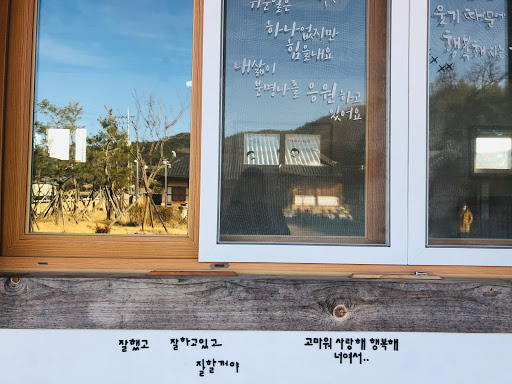 쉬운일은
하나 없지만
힘을내요
내삶이
분명 나를 응원하고
있어요
웃기 때문에
잘했고 잘하고있고
잘할꺼야
고마워 사랑해 행복해
너여서..